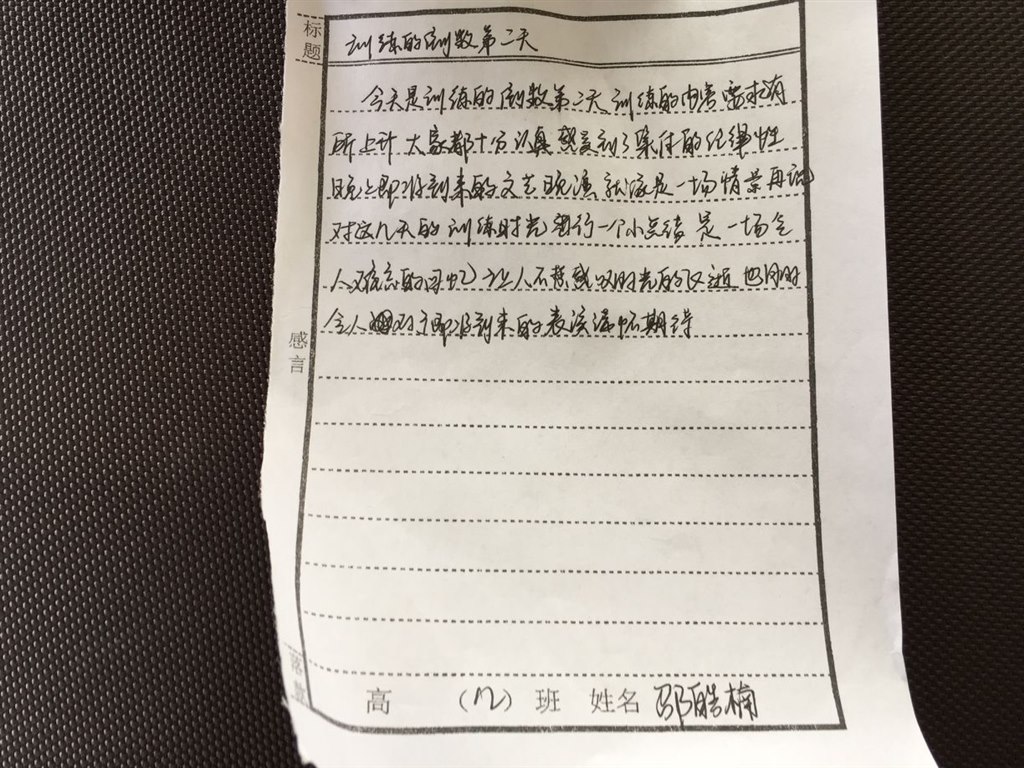 标题
训练的倒数第二天
今天是训练的倒数第二天,训练的内容要求有
所上升 大家都十分认真 感受到了集体的纪律性
晚上即将到来的文艺晚演 就像是一场情景再现
对这几天的训练时光进行一个小总结 是一场令
人难忘的回忆 让人不禁感叹时光的飞逝 也同时
令人对于即将到来的表演满怀期待
感言
落款
高 (12) 班 姓名 邵皓楠